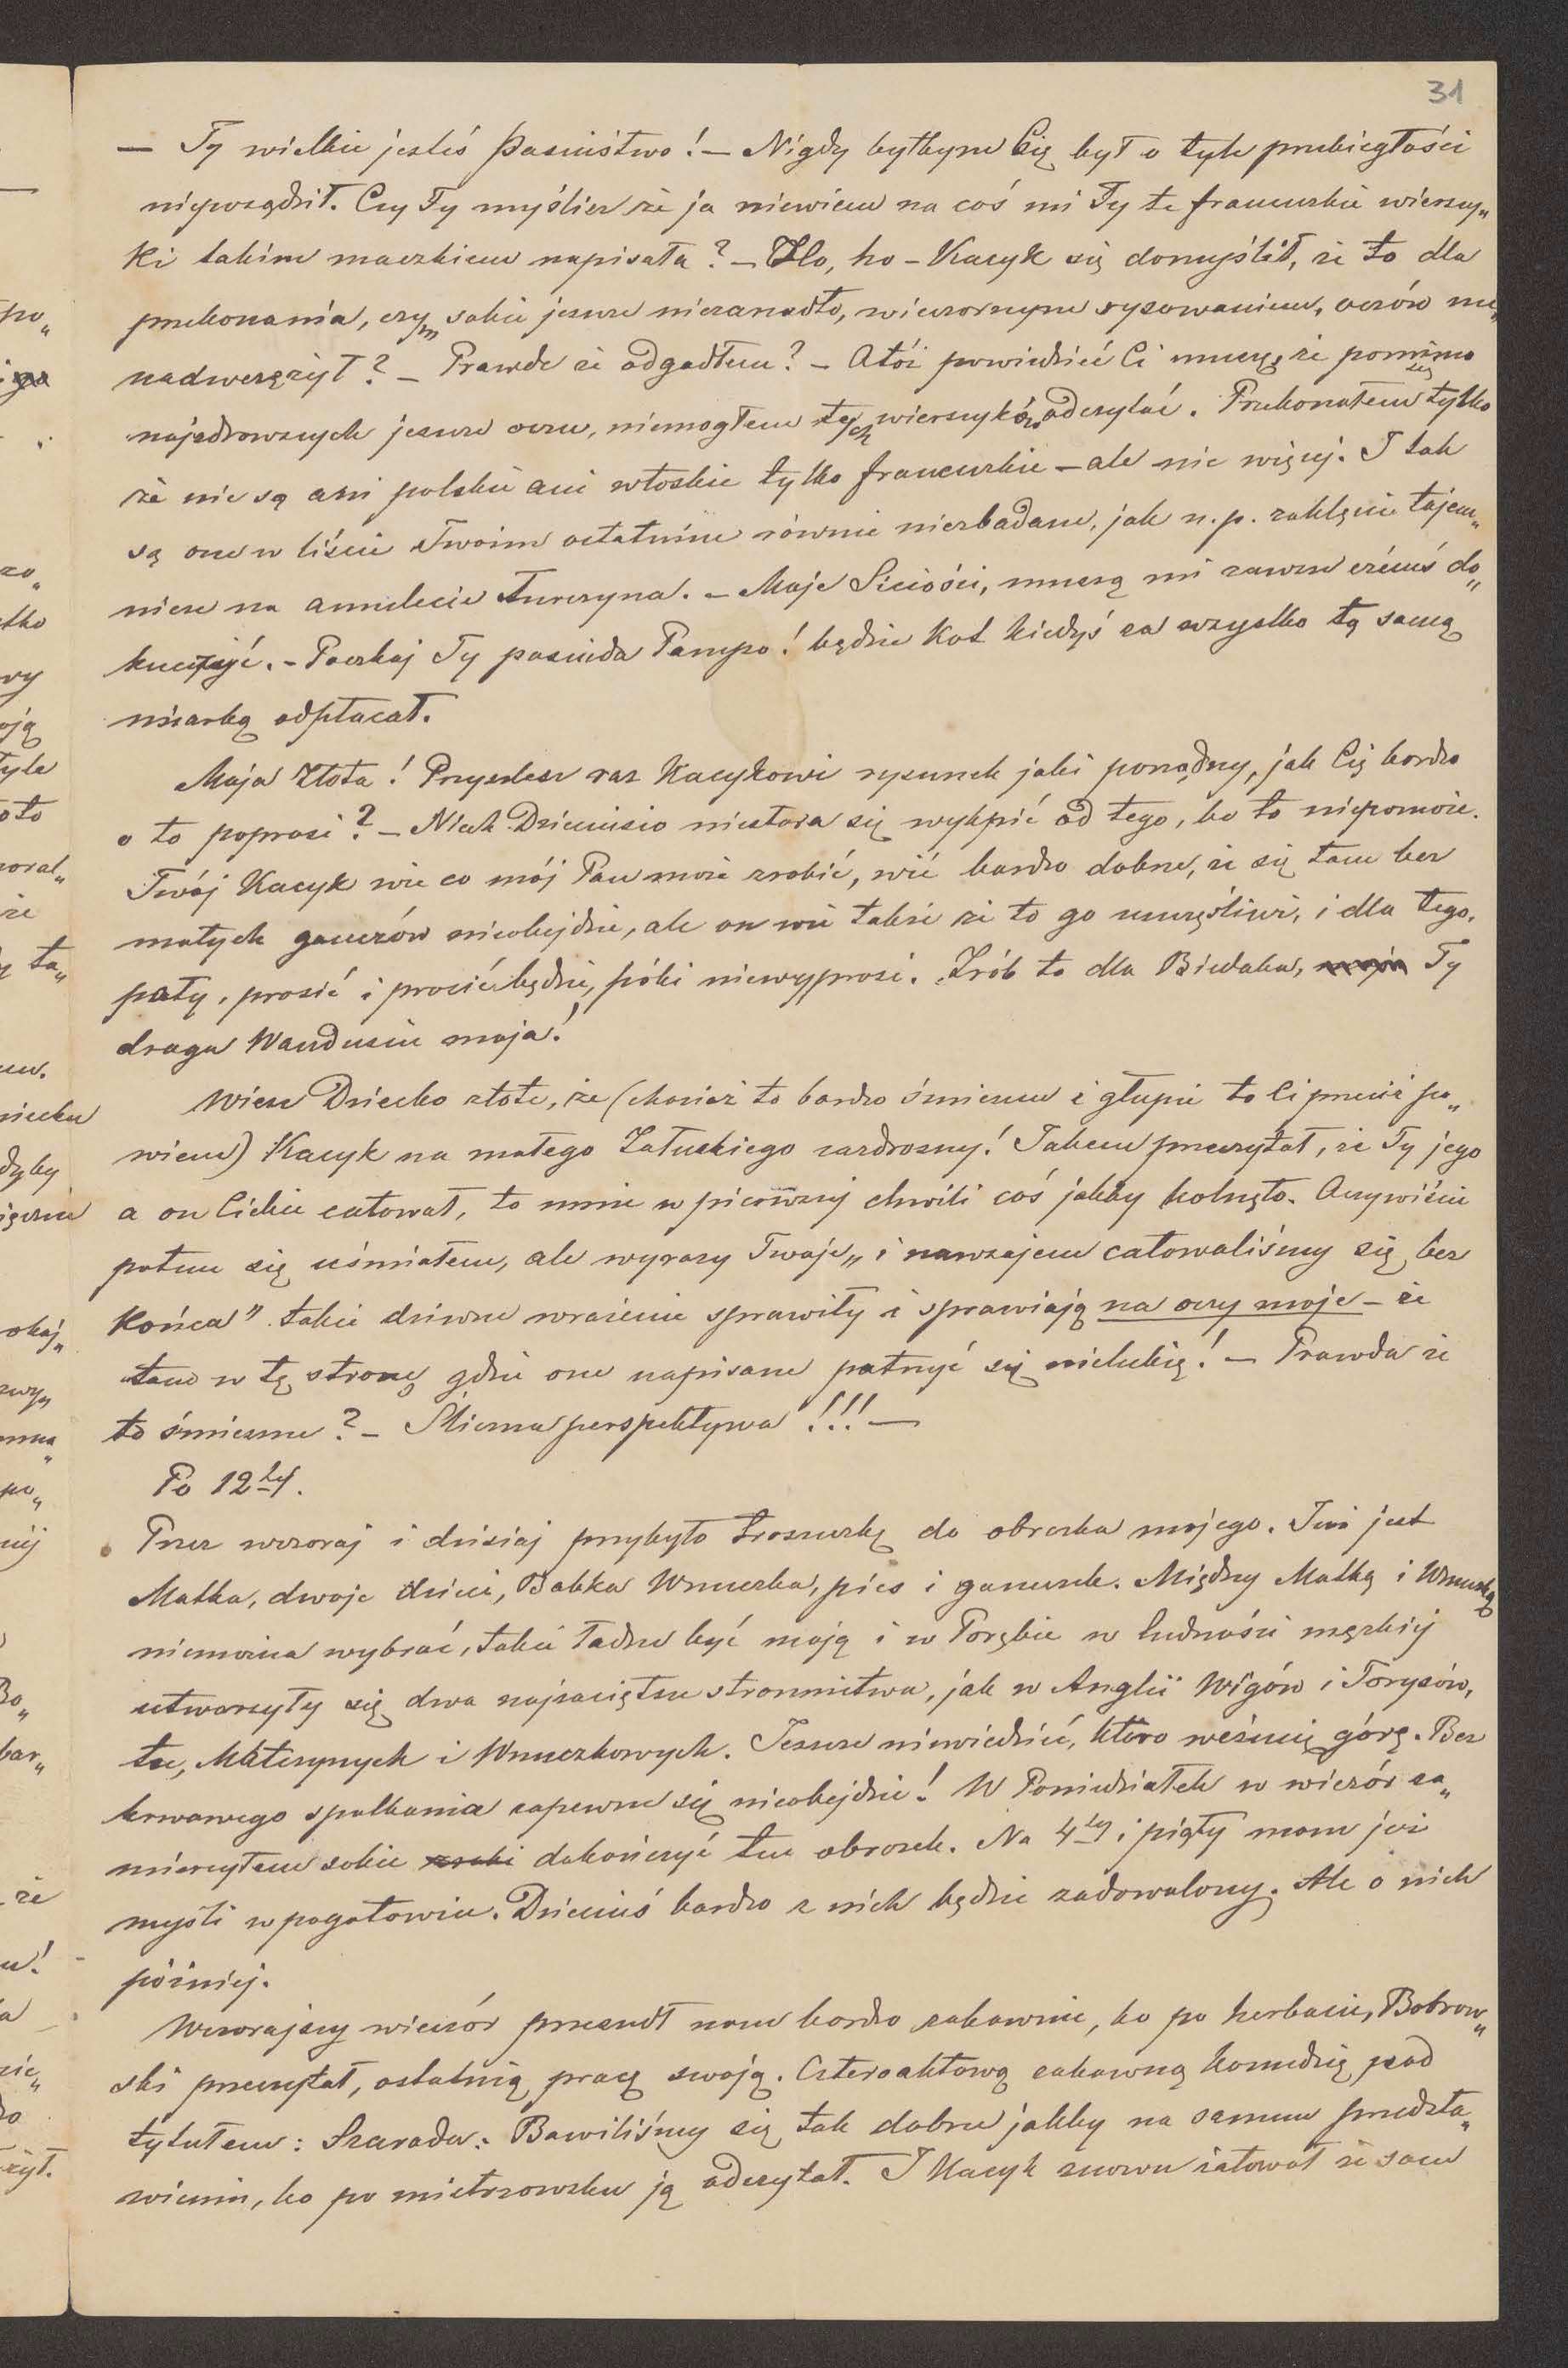 31
— Ty wielkie jesteś Pasiuistwo! — Nigdy byłbym Cię był o tyle przebiegłości
nieposądził. Czy Ty myślisz że ja niewiem na coś mi Ty te francuzkie wierszy„
ki takim maczkiem napisała? — Ho, ho — Kacyk się domyślił, że to dla
przekonania, czym sobie jeszcze niezanadto, wieczornym rysowaniem, oczów nie„
nadweręzył? — Prawda że odgadłem? — Atóż powiedzieć Ci muszę, że pomimo
najzdrowszych jeszcze oczu, niemogłem tych wierszyków odczytać. Przekonałem się tylko
że nie są ani polskie ani włoskie tylko francuzkie — ale nic więcej. I tak
są one w liście Twoim ostatnim równie niezbadane, jak n.p. zaklęcie tajem„
nicze na amulecie Turczyna. — Moje Siciości, muszą mi zawsze czémś do„
kuczyć. — Poczkaj Ty pasiuda Pampo! będzie Kot kiedyś za wszystko tą samą
miarką odpłacał.
Moja Złota! Przyszlesz raz Kacykowi rysunek jaki porządny, jak Cię bardzo
o to poprosi? — Niech Dzieciusio niestara się wykpić od tego, bo to niepomoże.
Twój Kacyk wie co mój Pan może zrobić, wié bardzo dobrze, że się tam bez
małych gauczów nieobejdzie, ale on wié także że to go uszczęśliwi, i dla tego,
póty, prosić i prosić będzie, póki niewyprosi. Zrób to dla Biedaka, Ty
droga Wandusiu moja!
Wiesz Dziecko złote, że (chociaż to bardzo śmieszne i głupie to Ci przecié po„
wiem) Kacyk na małego Załuskiego zazdrosny! Jakem przeczytał, że Ty jego
a on Ciebie całował, to mnie w pierwszej chwili coś jakby kolnęło. Oczywiście
potem się uśmiałem, ale wyrazy Twoje „i nawzajem całowaliśmy się bez
końca” takie dziwne wrażenie sprawiły i sprawiają na oczy moje — że
tam w tę stronę gdzie one napisane patrzyć się nielubię! — Prawda że
to śmieszne? — Śliczna perspektywa!!! —
Po 12tej.
Przez wczoraj i dzisiaj przybyło troszeczkę do obrazka mojego. Już jest
Matka, dwoje dzieci, Babka Wnuczka, pies i ganeczek. Między Matką i Wnuczką
niemożna wybrać, takie ładne być mają i w Porębie w ludności męzkiéj
utworzyły się dwa najzaciętsze stronnictwa, jak w Anglii Wigów i Torysów,
tu, Matczynych i Wnuczkowych. Jeszcze niewiedzieć, które weźmie górę. Bez
krwawego spotkania zapewne się nieobejdzie! W Poniedziałek w wieczór za„
mierzyłem sobie dokończyć ten obrazek. Na 4ty i piąty mam już
myśli w pogotowiu. Dzieciuś bardzo z nich będzie zadowolony. Ale o nich
później.
Wczorajszy wieczór przeszedł nam bardzo zabawnie, bo po herbacie, Bobrow„
ski przeczytał, ostatnią pracę swoją. Czteroaktową zabawną komedię pod
tytułem: Szarada. Bawiliśmy się tak dobrze jakby na samem przedsta„
wieniu, bo po mistrzowsku ją odczytał. I Kacyk znowu żałował że sam